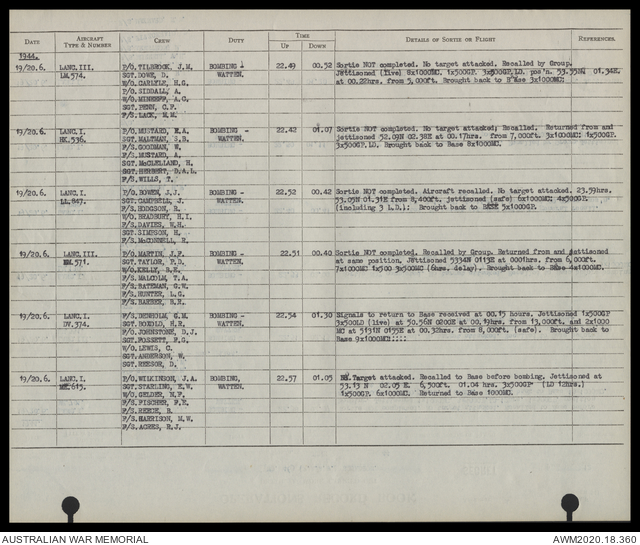 DATE AIRCRAFT TYPE & NUMBER CREW DUTY TIME UP DOWN DETAILS OF SORTIE OR FLIGHT REFERENCES.
1944.
19/20.6. LANC.III. P/O. TILBROOK, J.M. BOMBING - 22.49 00.52 Sortie NOT completed. No target attacked. Recalled by Group.
LM.574. SGT. DOWE, D. WATTEN. Jettisoned (live) 8x1000MC. 1x500GP. 3x500GP.LD. pos'n. 53.55N 01.34E.
W/O. CARLYLE, H.G. at 00.22hrs. from 5,000ft. Brought back to Base 3x1000MC:
P/O. SIDDALL, A.
W/O. A.G.
SGT. PENN, C.F.
F/S. LACK, N.M.
19/20.6. LANC.I. P/O. MUSTARD, E.A. BOMBING - 22.42 01.07 Sortie NOT completed. No target attacked; Recalled. Returned from and
HK.536. SGT. MALTMAN, S.B. WATTEN. jettisoned 52.09N 02.38E at 00.17hrs. from 7,000ft. 3x1000MC: 1x500GP.
F/S. GOODMAN, W. 3x500GP.LD. Brought back to Base 8x1000MC.
F/S. MUSTARD, A.
SGT. McCLELLAND, H.
SGT. HERBERT, D.A.L.
F/S. WILLS, T.
19/20.6. LANC.I. P/O. BOWEN, J.J. BOMBING - 22.52 00.42 Sortie NOT completed. Aircraft recalled. No target attacked. 23.59hrs.
LL.847. SGT. CAMPBELL, J. WATTEN. 53.05N 01.31E from 8,400ft. jettisoned (safe) 6x1000MC; 4x500GP.
F/S. HODGSON, R. (including 3 L.D.): Brought back to BASE 5x1000GP.
W/O. BRADBURY, H.I.
F/S. DAVIES, W.H.
SGT. SIMPSON, H.
F/S. McCONNELL, R.
19/20.6. LANC.III. P/O. MARTIN, J.F. BOMBING - 22.51 00.40 Sortie NOT completed. Recalled by Group. Returned from and jettisoned
571. SGT. TAYLOR, P.D. WATTEN. at same position. Jettisoned 5334N 0113E at 0001hrs, from 6,000ft.
W/O. KELLY, B.E. 7x1000MC 1x500 3x500MC (6hrs. delay). Brought back to Base 4x1000MC.
F/S. MALCOLM, T.A.
F/S. BATEMAN, G.W.
F/S. HUNTER, L.G.
F/S. BARBER, R.E.
19/20.6. LANC.I. F/S. DENHOLM, G.M. BOMBING - 22.54 01.30 Signals to return to Base received at 00.15 hours. Jettisoned 1x500GP
DV.374. SGT. BOXOLD, H.R. WATTEN. 3x500LD (live) at 50.56N 0200E at 00.19hrs. from 13,000ft. and 2x1000
P/O. JOHNSTONE, D.J. MC at 5131N 0155E at 00.32hrs. from 8,000ft. (safe). Brought back to
SGT. FOSSETT, F.G. Base 9x1000MC!::::
W/O. LEWIS, C.
SGT. ANDERSON, W.
SGT. REESOR, D.
19/20.6. LANC.I. P/O. WILKINSON, J.A. BOMBING, 22.57 01.05 No Target attacked. Recalled to Base before bombing. Jettisoned at
615. SGT. STARLING, K.W. WATTEN. 53.13 N 02.05 E. 6,500ft. 01.04 hrs. 3x500GP (LD 12hrs.)
W/O. GELDER, N.F. 1x500GP. 6x1000MC. Returned to Base 1000MC.
F/S. FISCHER, F.E.
F/S. REECE, B.
F/S. HARRISON, M.W.
F/S. ACRES, R.J.
AUSTRALIAN WAR MEMORIAL AWM2020.18.360